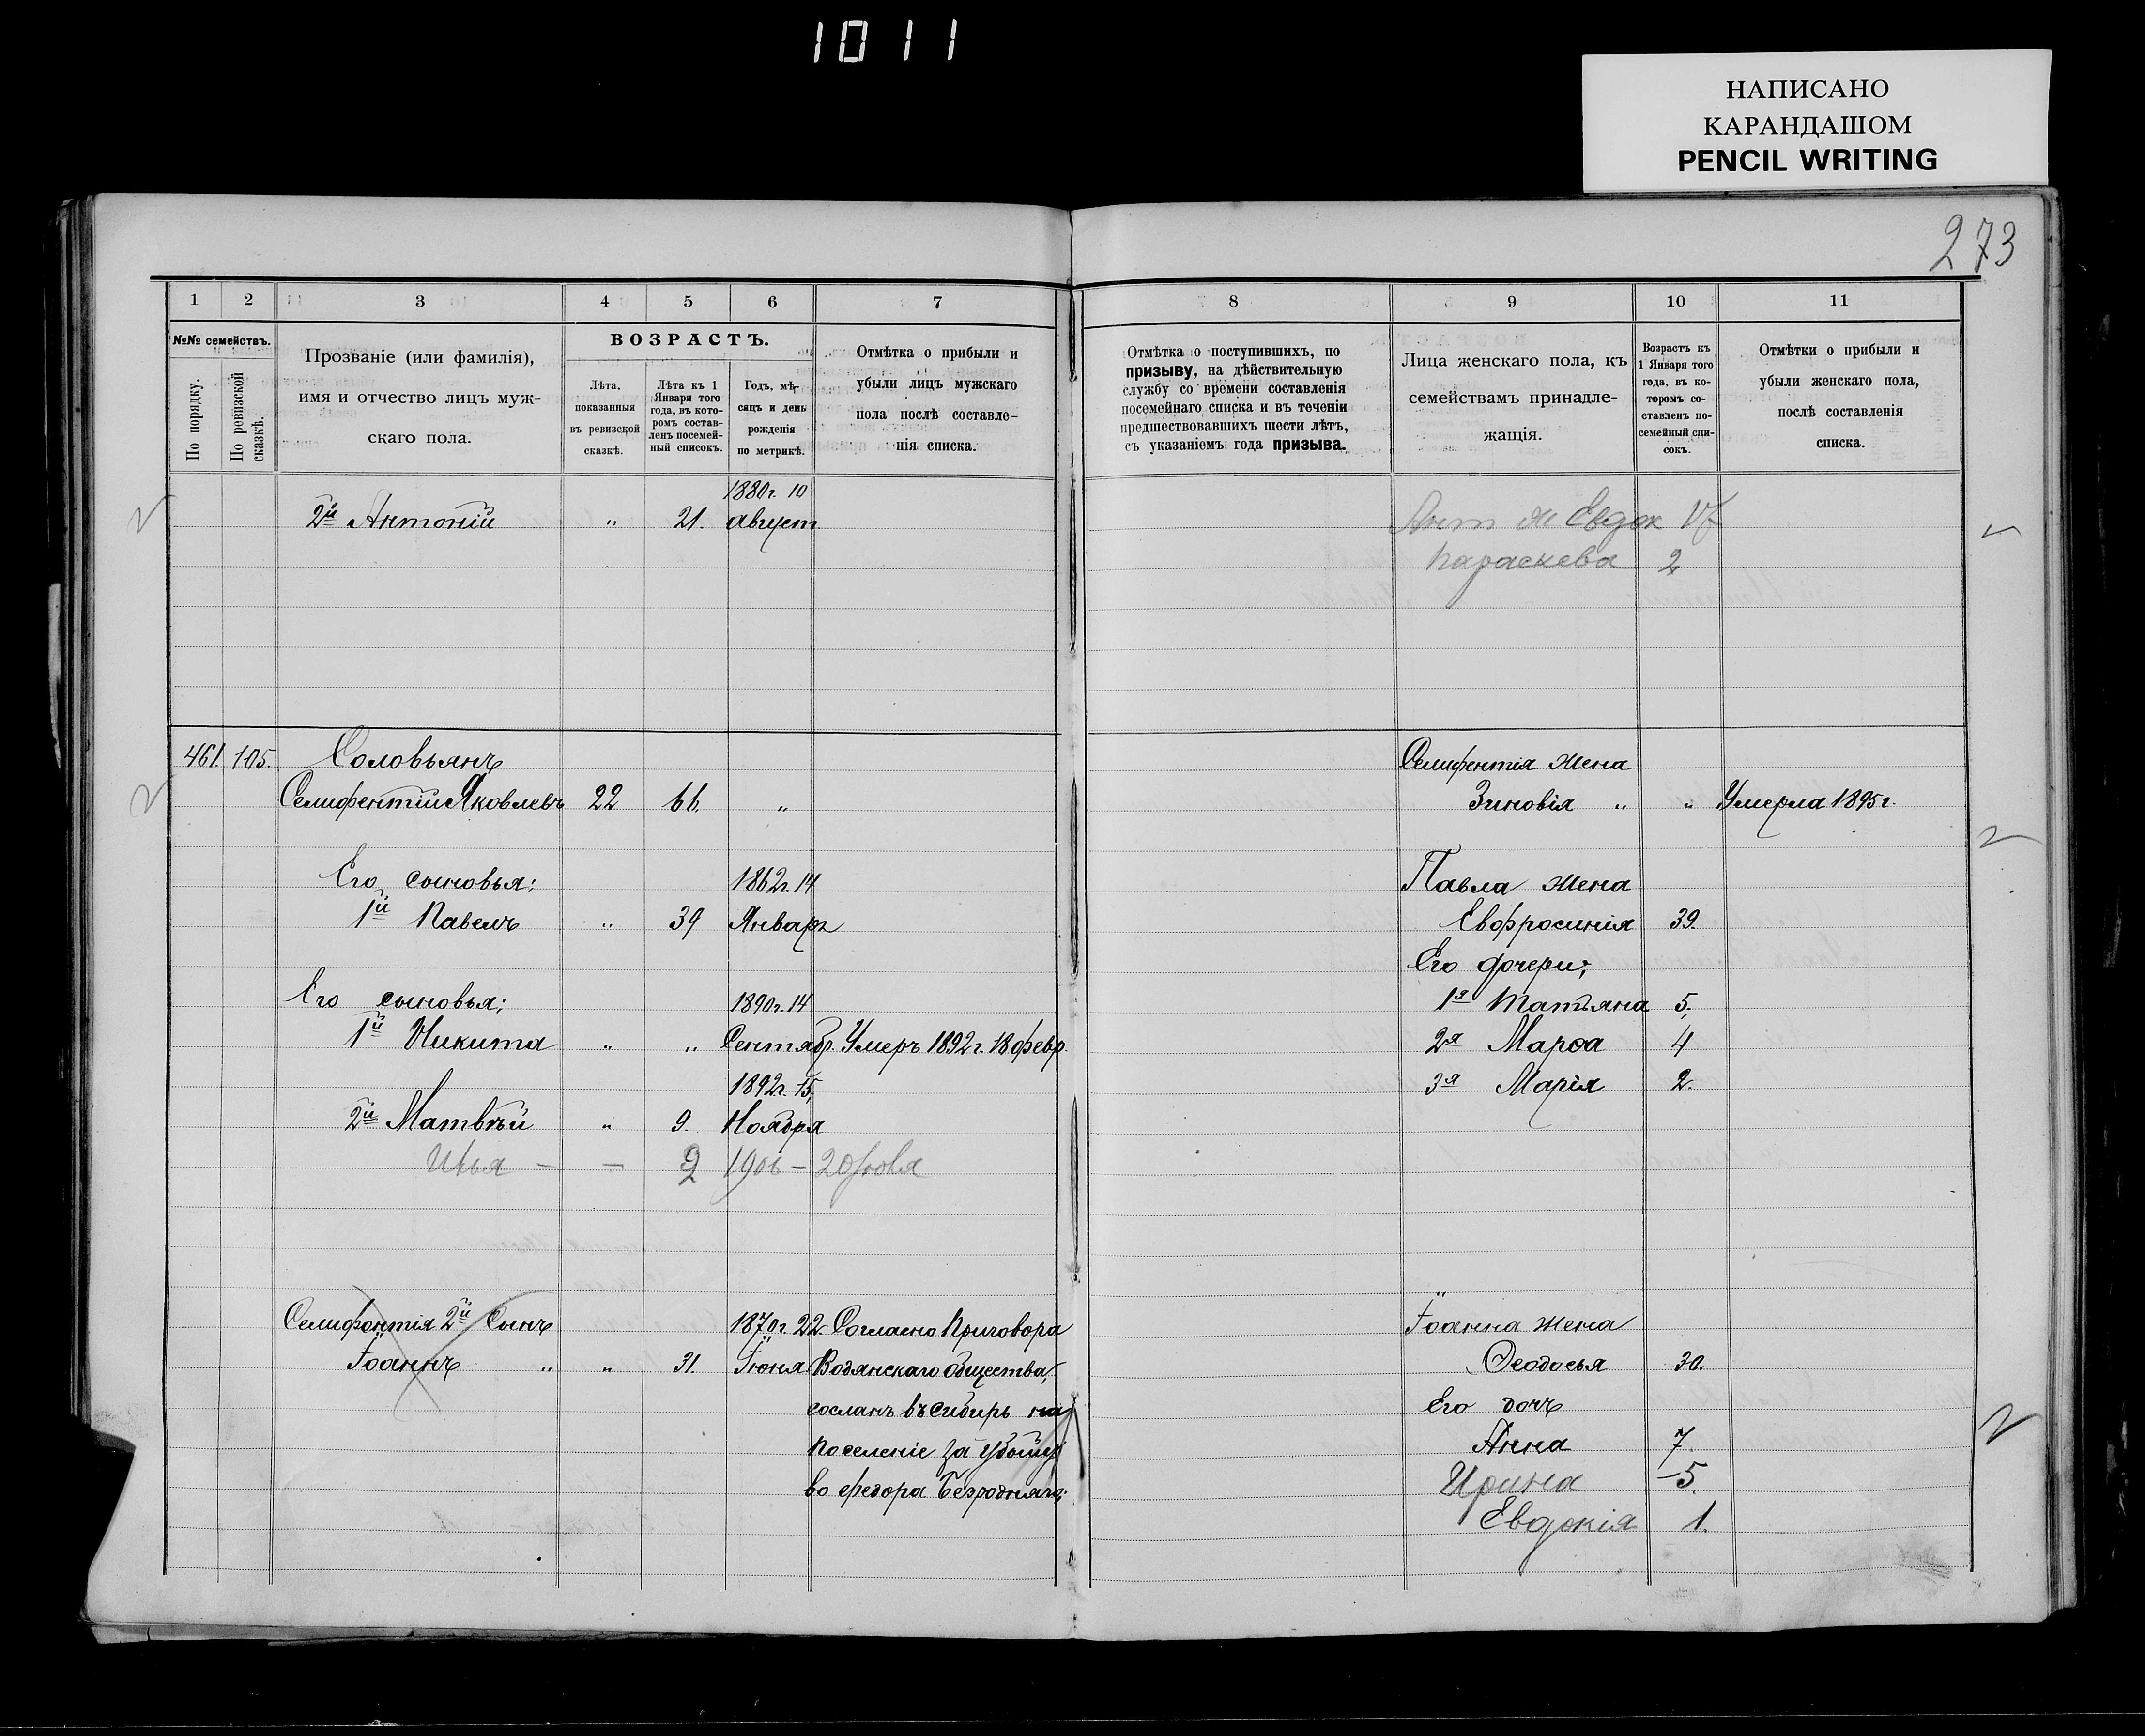 1011
НАПИСАНО
КАРАНДАШОМ
PENCIL WRITING
273
1 2 3 4 5 6 7
№№ семействъ.
По порядку.
По ревизской сказкѣ.
Прозваніе (или фамилія),
имя и отчество лицъ муж-
скаго пола.
ВОЗРАСТЪ.
Лѣта,
показанныя
въ ревизской
сказкѣ.
Лѣта къ 1
Января того
года, въ кото-
ромъ состав-
ленъ посемей-
ный списокъ.
Годъ, мѣ-
сяцъ и день
рожденія
по метрикѣ.
Отмѣтка о прибыли и
убыли лицъ мужскаго
пола послѣ составле-
нія списка.
1880г. 10
2й Антоній " 21. август
461. 105. Соловьянъ
Селифентій Яковлевъ 22 66. "
Его сыновья: 1862г. 14
1й Павелъ " 39 Январ
Его сыновья: 1890г. 14
1й Никита " " Сентябр. Умеръ 1892г. 18 февр.
1892г. 15,
2й Матвѣй " 9. Ноября
Илья - - 2 1906 - 20 Іюля
Селифонтія 2й Сынъ 1870г. 22. Согласно Приговора
Іоаннъ " " 31. Іюня Водянскаго общества,
сосланъ въ Сибирь на
поселеніе за убійст
во Федора Безроднаго;
8 9 10 11
Отмѣтка о поступившихъ, по
призыву, на дѣйствительную
службу со времени составленія
посемейнаго списка и въ теченіи
предшествовавшихъ шести лѣтъ,
съ указаніемъ года призыва.
Лица женскаго пола, къ
семействамъ принадле-
жащія.
Возрастъ къ
1 Января того
года, въ ко-
торомъ со-
ставленъ по-
семейный спи-
сокъ.
Отмѣтки о прибыли и
убыли женскаго пола,
послѣ составленія
списка.
Ант ж Евдок
Параскева 2
Селифентія жена
Зиновія " " Умерла 1895г.
Павла жена
Евфросинія 39.
Его дочери;
1я Татьяна 5.
2я Марѳа 4
3я Марія 2.
Іоанна жена
Ѳеодосья 30.
Его дочь
Анна 7.
Ирина -5.
Евдокія 1.